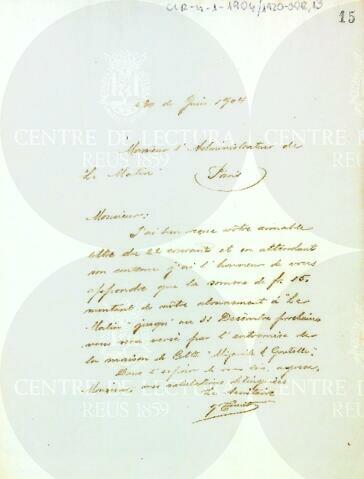 CLR-4-1-1904/1920-SOR, 15
15
30 de Juin 1904
Monsieur l'Administrateur de
"Le Matin"
Paris
Monsieur:
J'ai bien reçue votre aimable
lettre du 22 courant et en attendant
son contenu j'ai l'honneur de vous
apprendre que la somme de f. 15,
montant de nôtre abonnement à "Le
Matin" jusqu'au 31 Decembre prochain
vous sera versé par l'entremise de
la maison de
Dans l'espoir de agreez,
Monsieur, mes salutations distinguées
Le Secrétaire
CENTRE DE LECTURA
REUS 1859
CENTRE DE LECTURA
REUS 1859
CENTRE DE LECTURA
REUS 1859
CENTRE DE LECTURA
REUS 1859